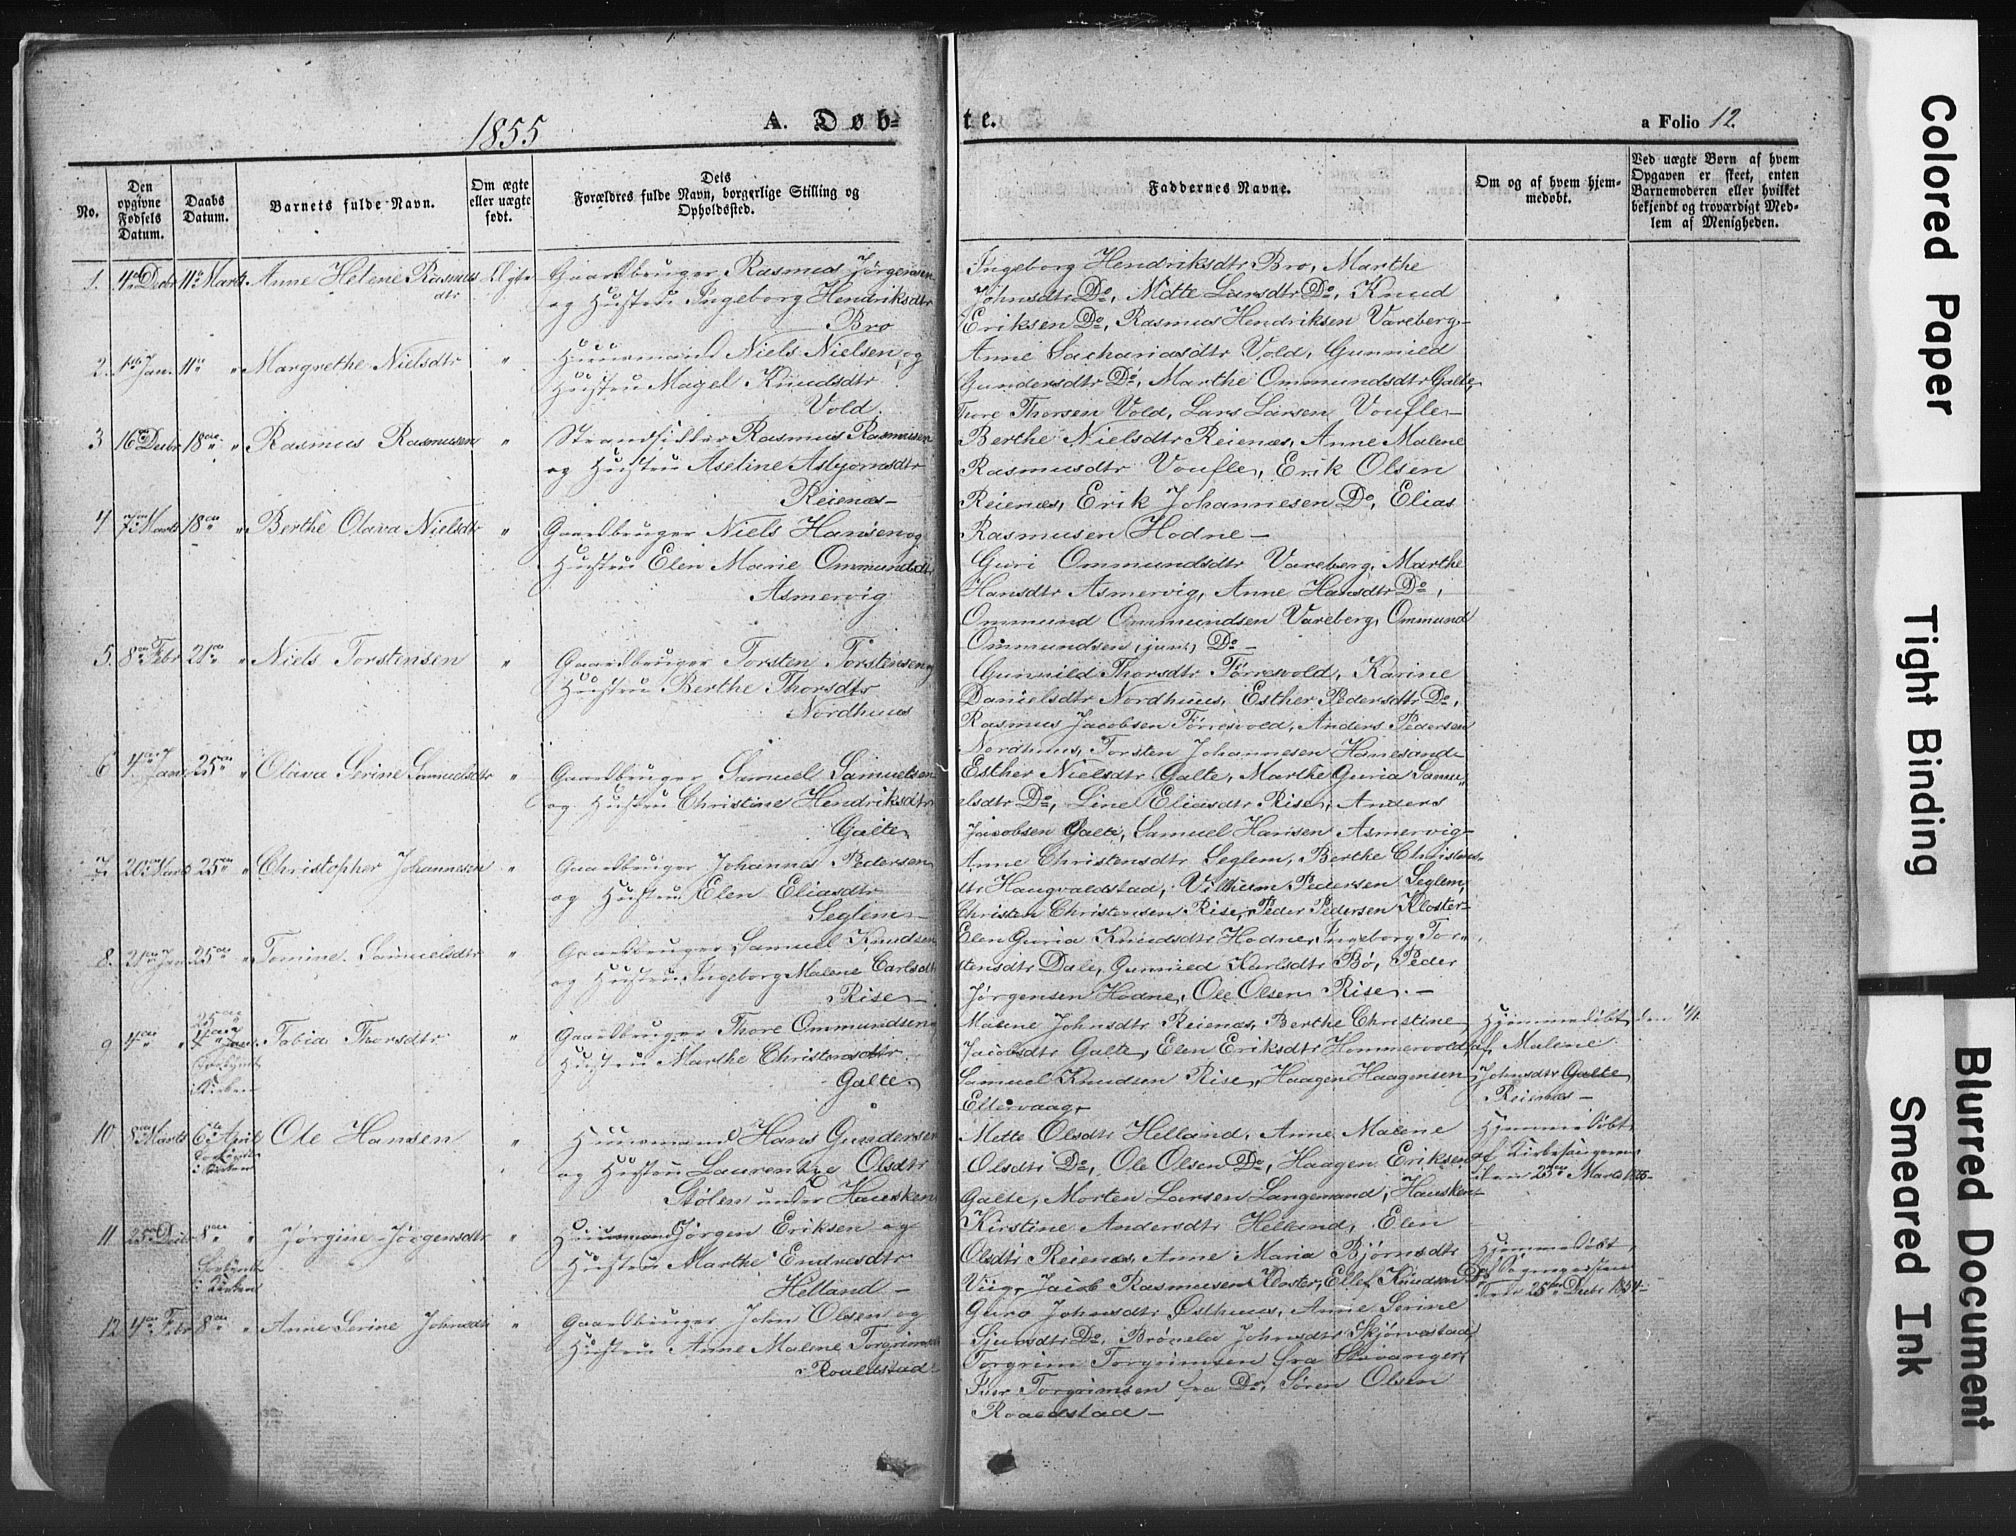 1855
A. Døb-
te.
a Folio 12.
No.
Den opgivne Fødsels Datum.
Daabs Datum.
Barnets fulde Navn.
Om ægte eller uægte født.
Dets Forældres fulde Navn, borgerlige Stilling og Opholdssted.
Faddernes Navne.
Om og af hvem hjemmedøbt.
Ved uægte Børn af hvem Opgaven er skeet, enten Barnemoderen eller hvilket bekjendt og troværdigt Medlem af Menigheden.
1. 4de Decbr 11te Marts Anne Helene Rasmusdtr Ægte Gaardbruger Rasmus Jørgensen
og Hustru Ingeborg Hendriksdtr
Bro
2. 1ste Jan. 11te " Margrethe Nielsdtr " Huusmand Niels Nielsen og
Hustru Magel Knudsdtr
Vold.
3 16de Decbr 18de " Rasmus Rasmusen " Strandsidder Rasmus Rasmusen
og Hustru Aseline Asbjørnsdtr
Reienæs
4 7de Marts 18de " Berthe Olava Nielsdtr " Gaardbruger Niels Hansen og
Hustru Elen Marie Ommundsdtr
Asmervig
5. 8de Febr 21de " Niels Torstensen " Gaardbruger Torsten Torstensen og
Hustru Berthe Thorsdtr
Nordhuus
6 4de Jan. 25de " Olava Serine Samuelsdtr " Gaardbruger Samuel Samuelsen
og Hustru Christine Hendriksdtr
Galte
7. 20de Marts 25de " Christopher Johannesen " Gaardbruger Johannes Pedersen
og Hustru Elen Eliasdtr
Seglem
8. 21de Jan. 25de " Tomine Samuelsdtr " Gaardbruger Samuel Knudsen
og Hustru Ingeborg Malene Carlsdtr
Rise
9. 4de " 25de Tobia Thorsdtr " Gaardbruger Thore Ommundsen
i Kirken Hustru Marthe Christensdtr
Galte
10. 8de Marts 6te April Ole Hansen " Huusmand Hans Gundersen
i Kirken og Hustru Laurentze Olsdtr
Stølen under Hausken
11. 25de Decbr 8de " Jørgine Jørgensdtr " Huusmand Jørgen Eriksen og
i Kirken Hustru Marthe Endresdtr
Helland
12 4de Febr 8de " Anne Serine Johnsdtr " Gaardbruger John Olsen og
Hustru Anne Malene Torgrimsdtr
Roaldstad
Ingeborg Hendriksdtr Bro, Marthe
Johnsdtr Do, Mette Larsdtr Do, Knud
Eriksen Do, Rasmus Hendriksen Vareberg
Anne Sachariasdtr Vold, Gunnild
Gundersdtr Do, Marthe Ommundsdtr Galte,
Thore Thorsen Vold, Lars Larsen Voufle
Berthe Nielsdtr Reienæs, Anne Malene
Rasmusdtr Voufle, Erik Olsen
Reienæs, Erik Johannesen Do, Elias
Rasmusen Hodne
Guri Ommundsdtr Vareberg, Marthe
Hansdtr Asmervig, Anne Hansdtr Do,
Ommund Ommundsen Vareberg, Ommund
Ommundsen (jun:) Do
Gunnild Thorsdtr Tørresvold, Karine
Danielsdtr Nordhuus, Esther Pedersdtr Do,
Rasmus Jacobsen Tørresvold, Anders Pedersen
Nordhuus, Torsten Johannesen Hanesand
Esther Nielsdtr Galte, Marthe Guria Samu-
elsdtr Do, Line Eliasdtr Rise, Anders
Jacobsen Galte, Samuel Hansen Asmervig
Anne Christensdtr Seglem, Berthe Christens-
dtr Haugvaldstad, Vilhelm Pedersen Seglem,
Christen Christensen Rise, Peder Pedersen Kloster
Elen Guria Knudsdtr Hodne, Ingeborg Tor-
stensdtr Dale, Gunnild Karlsdtr Bø, Peder
Jørgensen Hodne, Ole Olsen Rise.
Malene Johnsdtr Reienæs, Berthe Christine
Jacobsdtr Galte, Elen Eriksdtr Hommersvold
Samuel Knudsen Rise, Haagen Haagensen
Eltervaag
Mette Olsdtr Helland, Anne Malene
Olsdtr Do, Ole Olsen Do, Haagen Eriksen
Galte, Morten Larsen Langemand, Hausken
Kirstine Andersdtr Helland, Elen
Olsdtr Reienæs, Anne Maria Bjørnsdtr
Viig, Jacob Rasmusen Kloster, Ellef Knudsen Do
Guro Johnsdtr Østhuus, Anne Serine
Sjursdtr Do, Brønela Johnsdtr Skjørvestad,
Torgrim Torgrimsen fra Stavanger,
Iver Torgrimsen fra Do, Søren Olsen
Roaldstad
Hjemmedøbt den
af Malene
Johnsdtr Galte
Reienæs
Hjemmedøbt
af Kirkesangeren
den 23de Marts 1855
Hjemmedøbt
den 25de Decbr 1854
Colored Paper
Tight Binding
Blurred Document
Smeared Ink